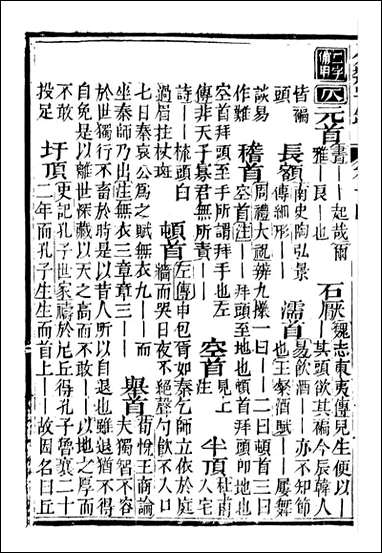 二字備用
八
元首
書——起哉爾
雅——艮也
石厭
魏志東夷傳兒生便以——
其頭欲其褊今辰韓人
皆褊
頭
長頸
南史陶弘景
傳細形——
濡首
易飲酒——亦不知節
也王粲酒賦——屢舞
談易
作難
稽首
周禮大祝辨九𢷎一曰——二曰頓首三曰
空首注——拜頭至地也頓首拜頭叩地也
空首拜頭至手所謂拜手也左
傳非天子寡君無所責——
空首
見上
注
半頂
杜甫
入宅
詩——梳頭白
過眉拄杖斑
頓首
左傳申包胥如秦乞師立依於庭
牆而哭日夜不絕聲勺飲不入口
七日秦哀公為之賦無衣九——而
坐秦師乃出注無衣三章章三——
舉首
荀悅王商論
夫獨智不容
於世獨行不畜於時是以昔人所以自退也雖退猶不得
自免是以離世深藏以天之高而不敢——以地之厚而
不敢
投足
圩頂
史記孔子世家禱於尼丘得孔子魯襄二十
二年而孔子生生而首上——故因名曰丘